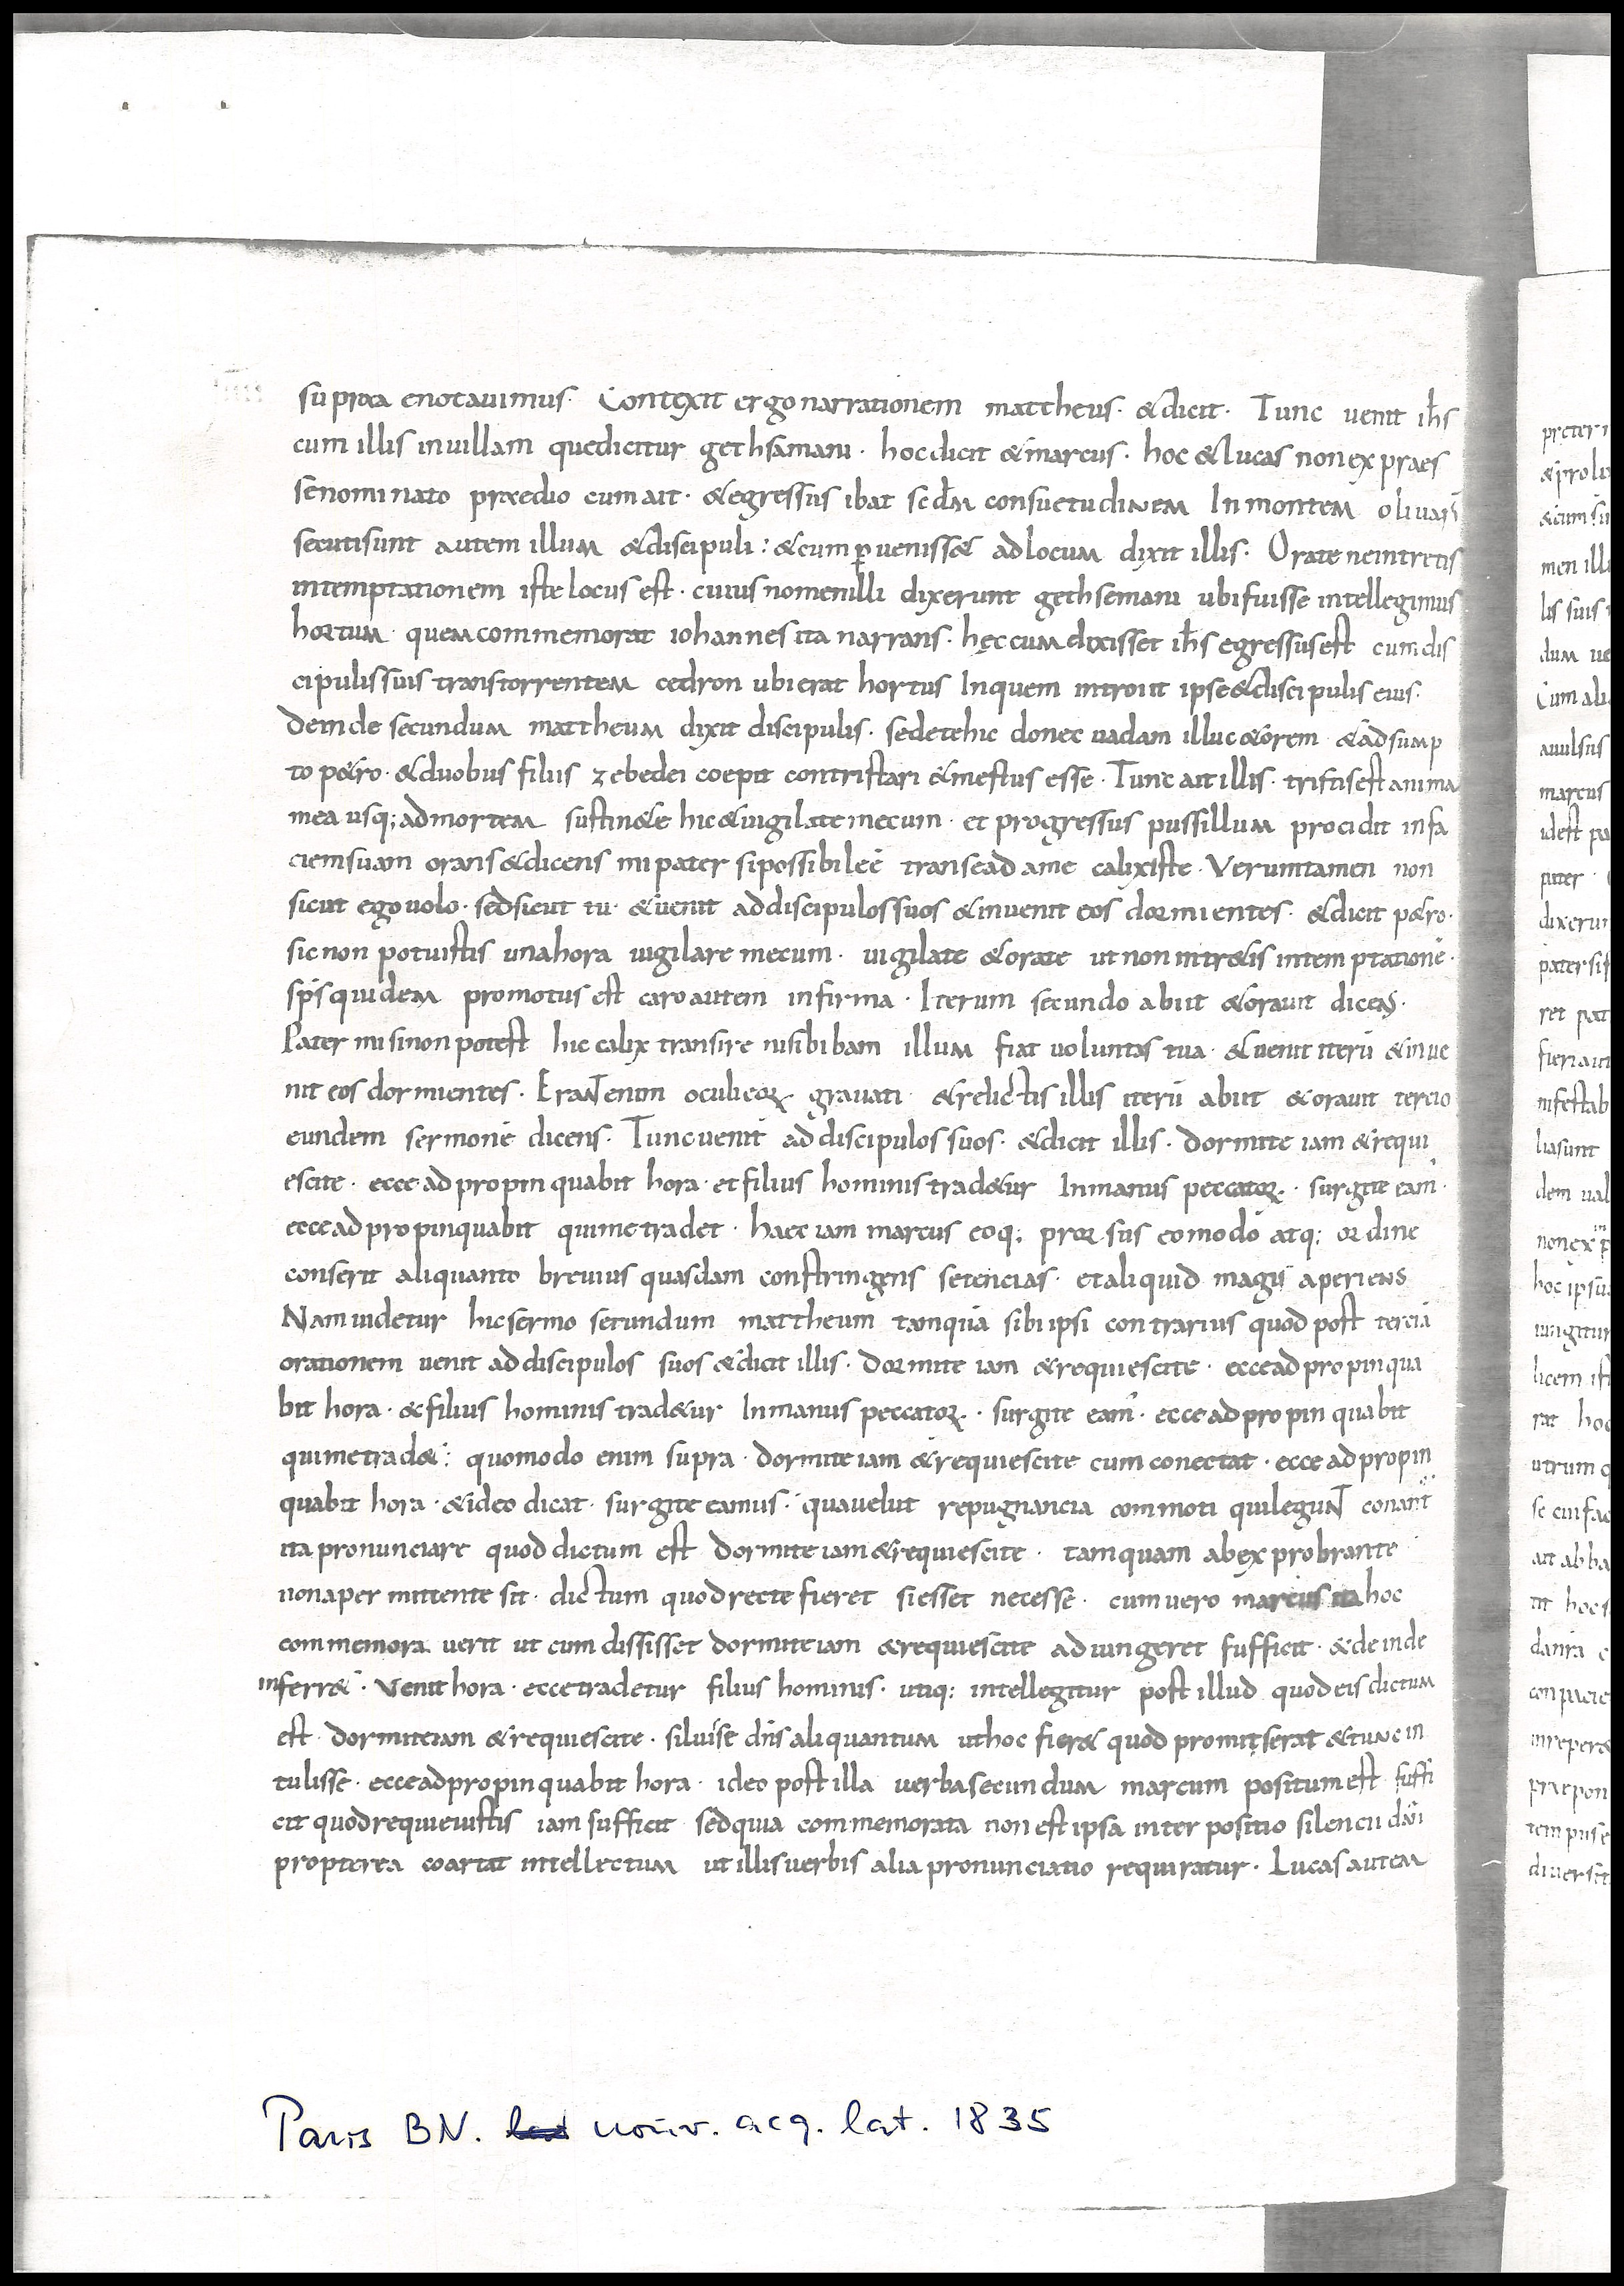 supra enotauimus· Contexit ergo narrationem mattheus· & dicit· Tunc uenit ih̅s
cum illis inuillam quedicitur gethsamani· hoc dicit & marcus· hoc & lucas non ex praes
se nominato praedio cum ait· & egressus ibat secd̅m consuetudinem In montem oliuarū
secuti sunt autem illum & discipuli: & cum ꝑuenisset ad locum dixit illis· Orate ne intretis
intemptationem iste locus est· cuius nomen illi dixerunt gethsemani ubi fuisse intellegimus
hortum· quem commemorat iohannes ita narrans· hęc cum dixisset ih̅s egressus est cum dis
cipulis suis trans torrentem cedron ubi erat hortus In quem introiit ipse & discipulis eius·
deinde secundum mattheum dixit discipulis· sedete hic donec uadam illuc & orem & adsump
to p&ro· & duobus filiis zebedei coepit contristari & mestus esse· Tunc ait illis· tristis est anima
mea usq; ad mortem sustin&e hic & uigilate mecum· et progressus pussillum procidit in fa
ciem suam orans & dicens mi pater si possibile ē transead a me calix iste· Veruntamen non
sicut ego uolo· sed sicut tu· & uenit ad discipulos suos & inuenit eos dormientes· & dicit p&ro·
sic non potuistis una hora uigilare mecum· uigilate & orate ut non intr&is in temptationē·
sp̅s quidem promotus est caro autem infirma· Iterum secundo abiit & orauit dicens·
Pater mi si non potest hic calix transire nisi bibam illum fiat uoluntas tua· & uenit iterū & inue
nit eos dormientes· Erant enim oculi eoꝝ grauati & relictis illis iterū abiit & orauit tercio
eundem sermonē dicens· Tunc uenit ad discipulos suos· & dicit illis· dormite iam & requi
escite· ecce adpropinquabit hora· et filius hominis trad&ur In manus peccatoꝝ· surgite eam᾽·
ecce adpropinquabit qui me tradet· haec iam marcus eoq; prorsus eo modo atq; ordine
conserit aliquanto breuius quasdam constringens setencias· et aliquid magis aperiens
Nam uidetur hic sermo secundum mattheum tamquā sibi ipsi contrarius quod post terciā
orationem uenit ad discipulos suos & dicit illis· dormite iam & requiescite· ecce adpropinqua
bit hora· & filius hominis trad&ur In manus peccatoꝝ· surgite eam᾽· ecce adpropinquabit
qui me trad&: quomodo enim supra· dormite iam & requiescite cum conectat· ecce adpropin
quabit hora· & ideo dicat· surgite eamus· qua uelut repugnancia commoti qui legunt conant᾽
ita pronunciare quod dictum est dormite iam & requiescite· tamquam ab exprobrante
non a permittente sit· dictum quod recte fieret si esset necesse· cum uero marcus ita hoc
commemorauerit ut cum dississet dormite iam & requiescite adiungeret sufficit· & deinde
inferr&· Venit hora· ecce tradetur filius hominis· utiq; intellegitur post illud quod eis dictum
est· dormite iam & requiescite· siluise dn̅s aliquantum ut hoc fier& quod promiserat & tunc in
tulisse· ecce adpropinquabit hora· ideo post illa uerba secundum marcum positum est suffi
cit quod requieuistis iam sufficit sed quia commemorata non est ipsa interpositio silencii dn̅i
propterea coartat intellectum ut illis uerbis alia pronunciatio requiratur· Lucas autem
Paris BN. nouv. acq. lat. 1835